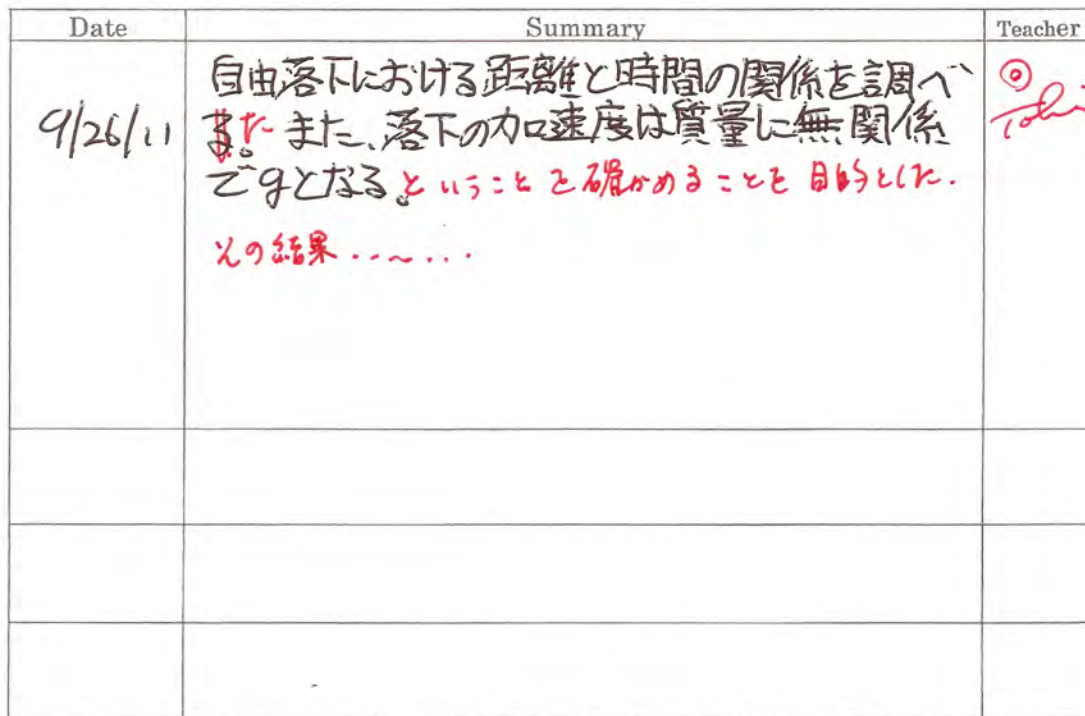 Date Summary Teacher
自由落下における距離と時間の関係を調べ
9/26/11 た。また、落下の加速度は質量に無関係
でgとなる。ということを確かめることを目的とした.
その結果..~...